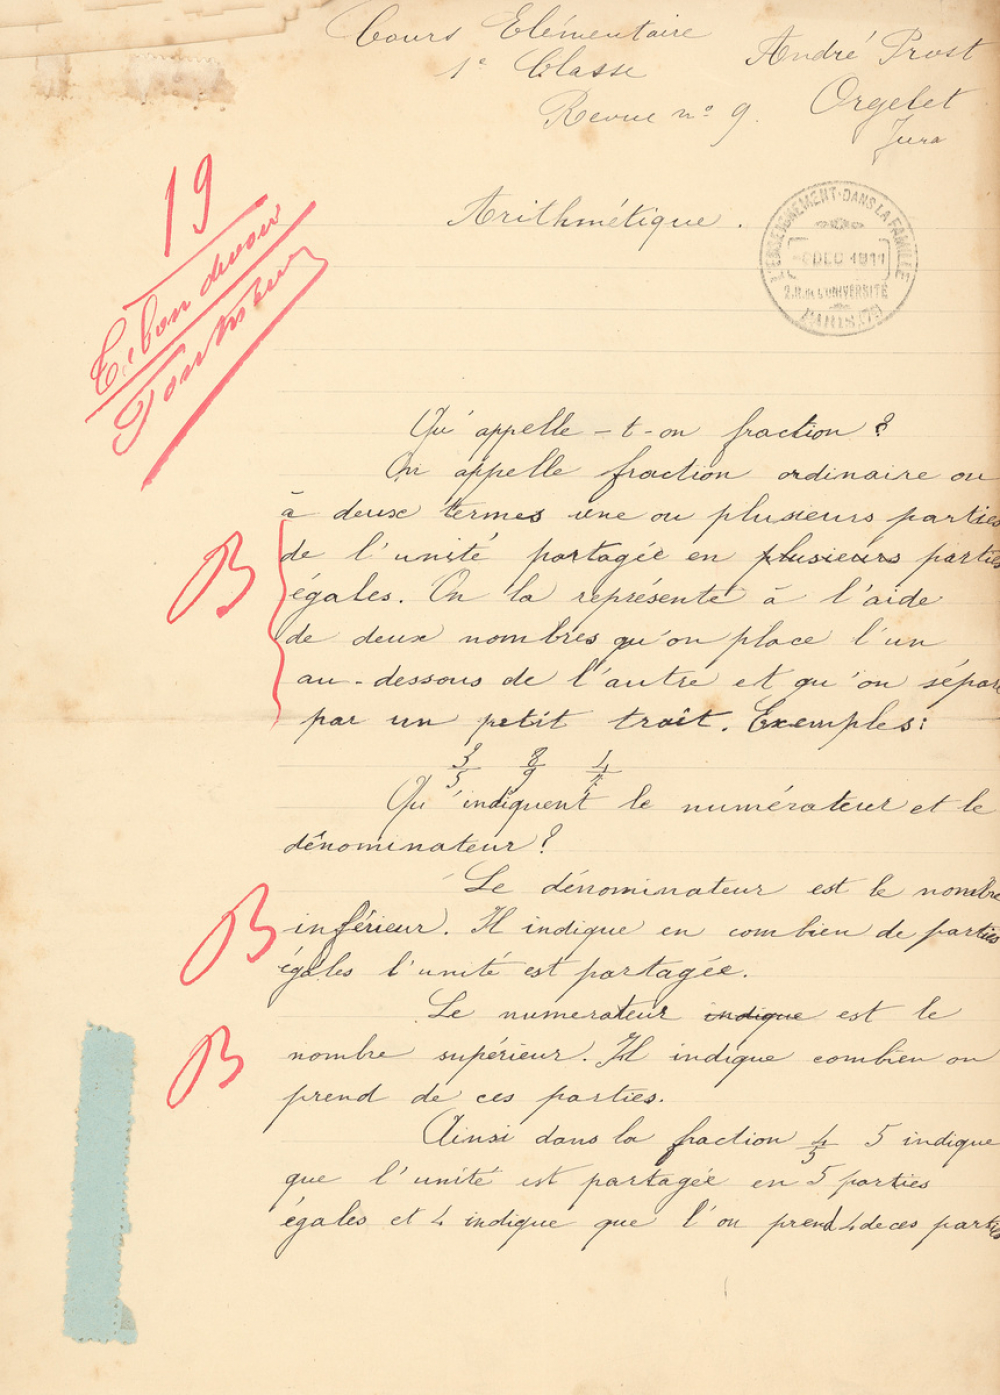 Cours Elémentaire
1e Classe
Revue n° 9.
André Prost
Orgelet
Jura
Arithmétique.
L'ENSEIGNEMENT DANS LA FAMILLE
DEC 1911
2.R. de L'UNIVERSITÉ
PARIS (7e)
19
T. bon devoir
Qu'appelle-t-on fraction ?
On appelle fraction ordinaire ou
à deux termes une ou plusieurs parties
de l'unité partagée en plusieurs parties
égales. On la représente à l'aide
de deux nombres qu'on place l'un
au-dessous de l'autre et qu'on sépare
par un petit trait. Exemples:
3/5 8/9
Qu'indiquent le numérateur et le
dénominateur ?
Le dénominateur est le nombre
inférieur. Il indique en combien de parties
égales l'unité est partagée.
Le numerateur indique est le
nombre supérieur. Il indique combien on
prend de ces parties.
Ainsi dans la fraction 4/5 5 indique
que l'unité est partagée en 5 parties
égales et 4 indique que l'on prend 4 de ces parties
B
B
B